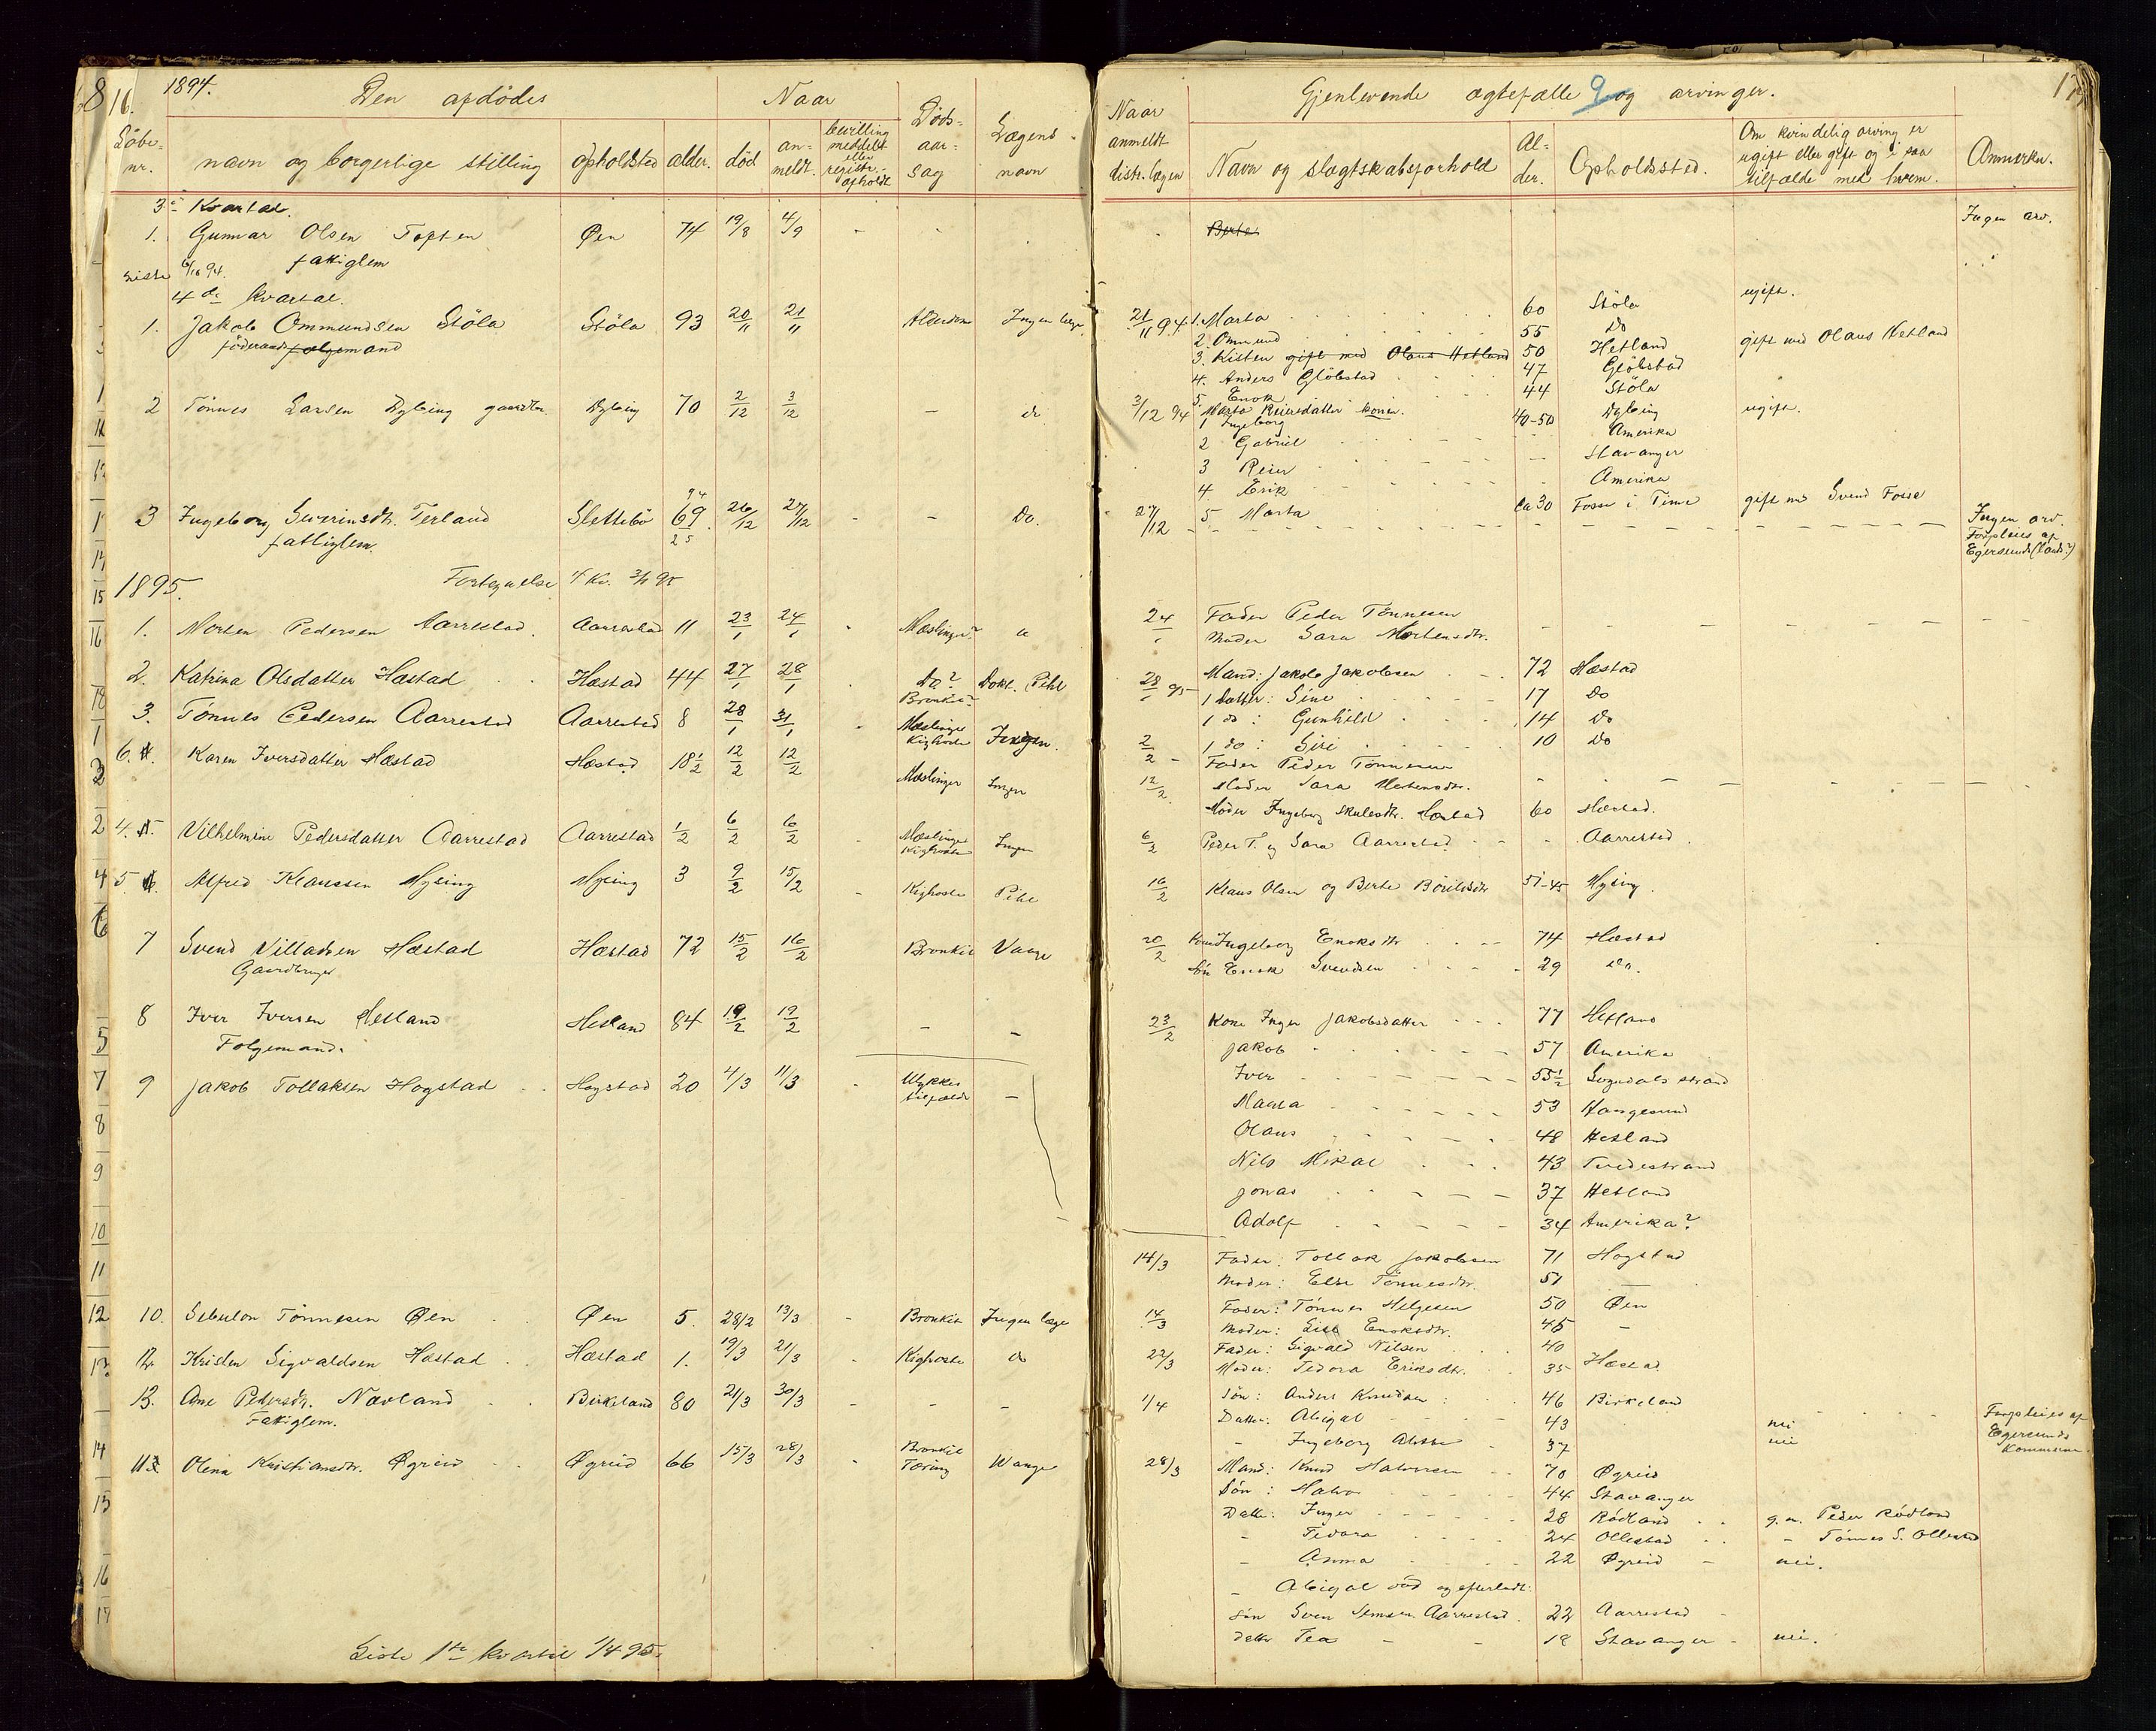 8 16. 1894.
Den afdødes
Naar
Löbe-nr.
navn og borgerlige stilling
opholdsted
alder.
död
an-meldt.
bevilling meddelt eller registr. afholdt
Döds-aar-sag
Lægens navn
3. Kvartal.
1. Gunnar Olsen Toften Øen 74 19/8 4/9 - -
fattiglem
Liste 6/10 94.
4de kvartal.
1. Jakob Ommundsen Stöla Stöla 93 20/11 21/11 Alderdom Ingen læge
föderaadsmand
2 Tönnes Larsen Dybing gaardbr. Dybing 70 2/12 3/12 - do
3 Ingeborg Sivrinsdtr. Terland Slettebö 69 26/12 27/12 - - Do.
fattiglem.
94
25
1895. Fortegnelse 4 Kv. 3/1 95
1. Morten Pedersen Aarrestad. Aarrestad 11 23/1 24/1 - Mæslinger?
2. Katrina Olsdatter Hæstad Hæstad 44 27/1 28/1 Do? Dokt. Pihl
Bronkit?
3. Tönnes Pedersen Aarrestad Aarrestad 8 28/1 31/1 Mæslinger Kighoste Ingen.
6. Karen Iversdatter Hæstad Hæstad 18½ 12/2 12/2 Mæslinger Ingen
4. Vilhelmine Pedersdatter Aarrestad Aarrestad ½ 6/2 6/2 - Mæslinger Kighoste Ingen
5. Alfred Klaussen Mysing Mysing 3 9/2 15/2 - Kighoste Pihl
7 Svend Villadsen Hæstad Hæstad 72 15/2 16/2 Bronkit Vaage
Gaardbruger
8 Iver Iversen Hetland Hetland 84 19/2 19/2 - -
Folgemand.
9 Jakob Tollaksen Hogstad Hogstad 20 4/3 11/3 - Ulykkestilfælde -
10. Sebulon Tönnesen Øen Øen 5. 28/2 13/3 - Bronkit Ingen læge
12. Kristen Sigvaldsen Hæstad Hæstad 1. 19/3 21/3 - Kighoste do
13. Ane Pedersdtr. Nævland Birkeland 80 21/3 30/3 - - -
Fattiglem.
11. Olena Kristiansdtr. Øgreid Øgreid 66 15/3 28/3 - Bronkit Tæring Waage
Liste 1ste kvartal 1/4 95.
17
Gjenlevende ægtefælle og arvinger.
9
Naar anmeldt distr. lægen
Navn og slægtskabsforhold
Al-der.
Opholdssted.
Om kvindelig arving er ugift eller gift og i saa tilfælde med hvem.
Anmerkn.
Berte
Ingen arv.
21/11 94 1. Marta 60 Stöla ugift.
2. Ommund 55 Do
3. Kisten gift med Olaus Hetland 50 Hetland gift med Olaus Hetland
4. Anders Glöbstad 47 Glöbstad
5. Enok 44 Stöla
3/12 94 Marta Reiersdatter kone. 40-50 Dybing ugift.
1 Ingeborg Amerika
2 Gabriel - Stavanger
3 Reier - Amerika
4. Erik
5 Marta ca 30 Fosse i Time gift med Svend Fosse
27/12 Ingen arv.
Forpleies af Egersund (land?)
24/1 Fader Peder Tönnesen
Moder Sara Mortensdtr.
28/1 95 Mand: Jakob Jakobsen 72 Hæstad
1 datter: Sine 17 Do
1 do: Gunhild 14 Do
1 do: Siri 10 Do
2/2 Fader Peder Tönnesen
Moder Sara Mortensdtr.
12/2 Moder Ingeborg Skulesdtr. Hæstad 60 Hæstad.
6/2 Peder T. og Sara Aarrestad Aarrestad.
16/2 Klaus Olsen og Berte Böilesdtr 51-45 Mysing.
20/2 Kone Ingeborg Enoksdtr 74 Hæstad
Sön Enok Svendsen 29 do.
23/2 Kone Inger Jakobsdatter 77 Hetland
Jakob 57 Amerika
Iver 55½ Sogndals strand
Maria 53 Haugesund
Olaus 48 Hetland
Nils Mikal 43 Tvedestrand
Jonas 37 Hetland
Adolf 34 Amerika?
14/3 Fader: Tollak Jakobsen 71 Hogstad
Moder: Else Tönnesdtr. 51 -
14/3 Fader: Tönnes Helgesen 50 Øen
Moder: Lise Enoksdtr. 45 -
22/3 Fader: Sigvald Nilsen 40
Moder: Tedora Eriksdtr. 35 Hæstad
1/4 Sön: Anders Knudsen 46 Birkeland
Datter: Abigal 43 nei
- Ingeborg 37 nei
Forpleies af Egersunds Kommune
28/3 Mand: Knud Halvorsen 70 Øgreid
Sön: Halvor 44 Stavanger
Datter: Inger 28 Rödland g. m. Peder Rödland
- Tedora 24 Ollestad - Tönnes S. Ollestad
- Anna 22 Øgreid - nei.
- Abigal död og efterladt:
sön Sven Simsen Aarrestad. 22 Aarrestad
datter Tea 18 Stavanger - nei.